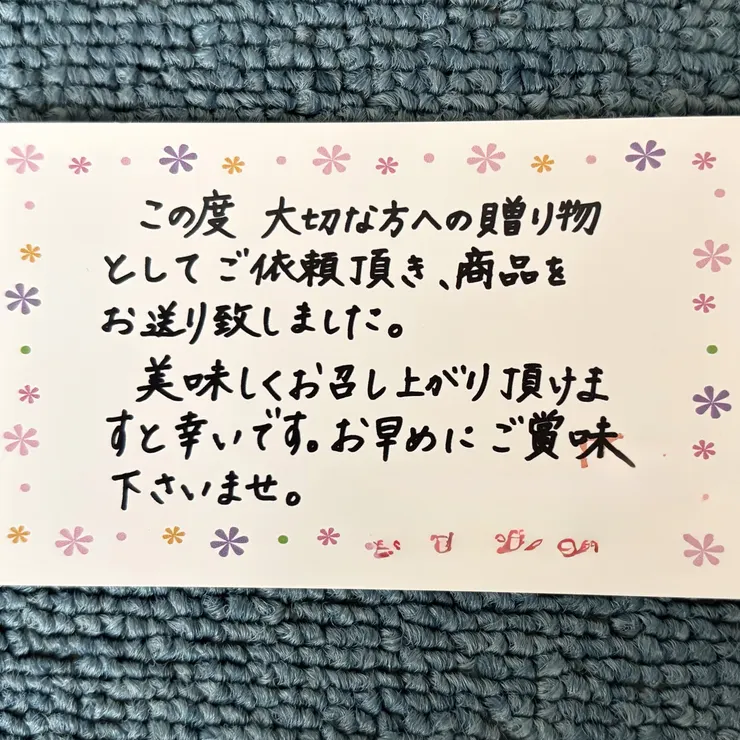 この度 大切な方への贈り物
としてご依頼頂き、商品を
お送り致しました。
美味しくお召し上がり頂けま
すと幸いです。お早めにご賞味
下さいませ。